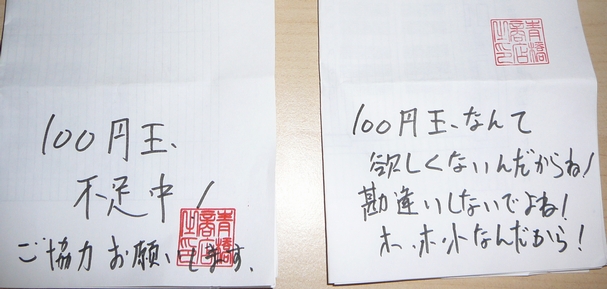 100円玉、
不足中!
ご協力お願いします。
青橋
商店
之印
100円玉、なんて
欲しくないんだからね!
勘違いしないでよね!
ホ、ホントなんだから!
青橋
商店
之印